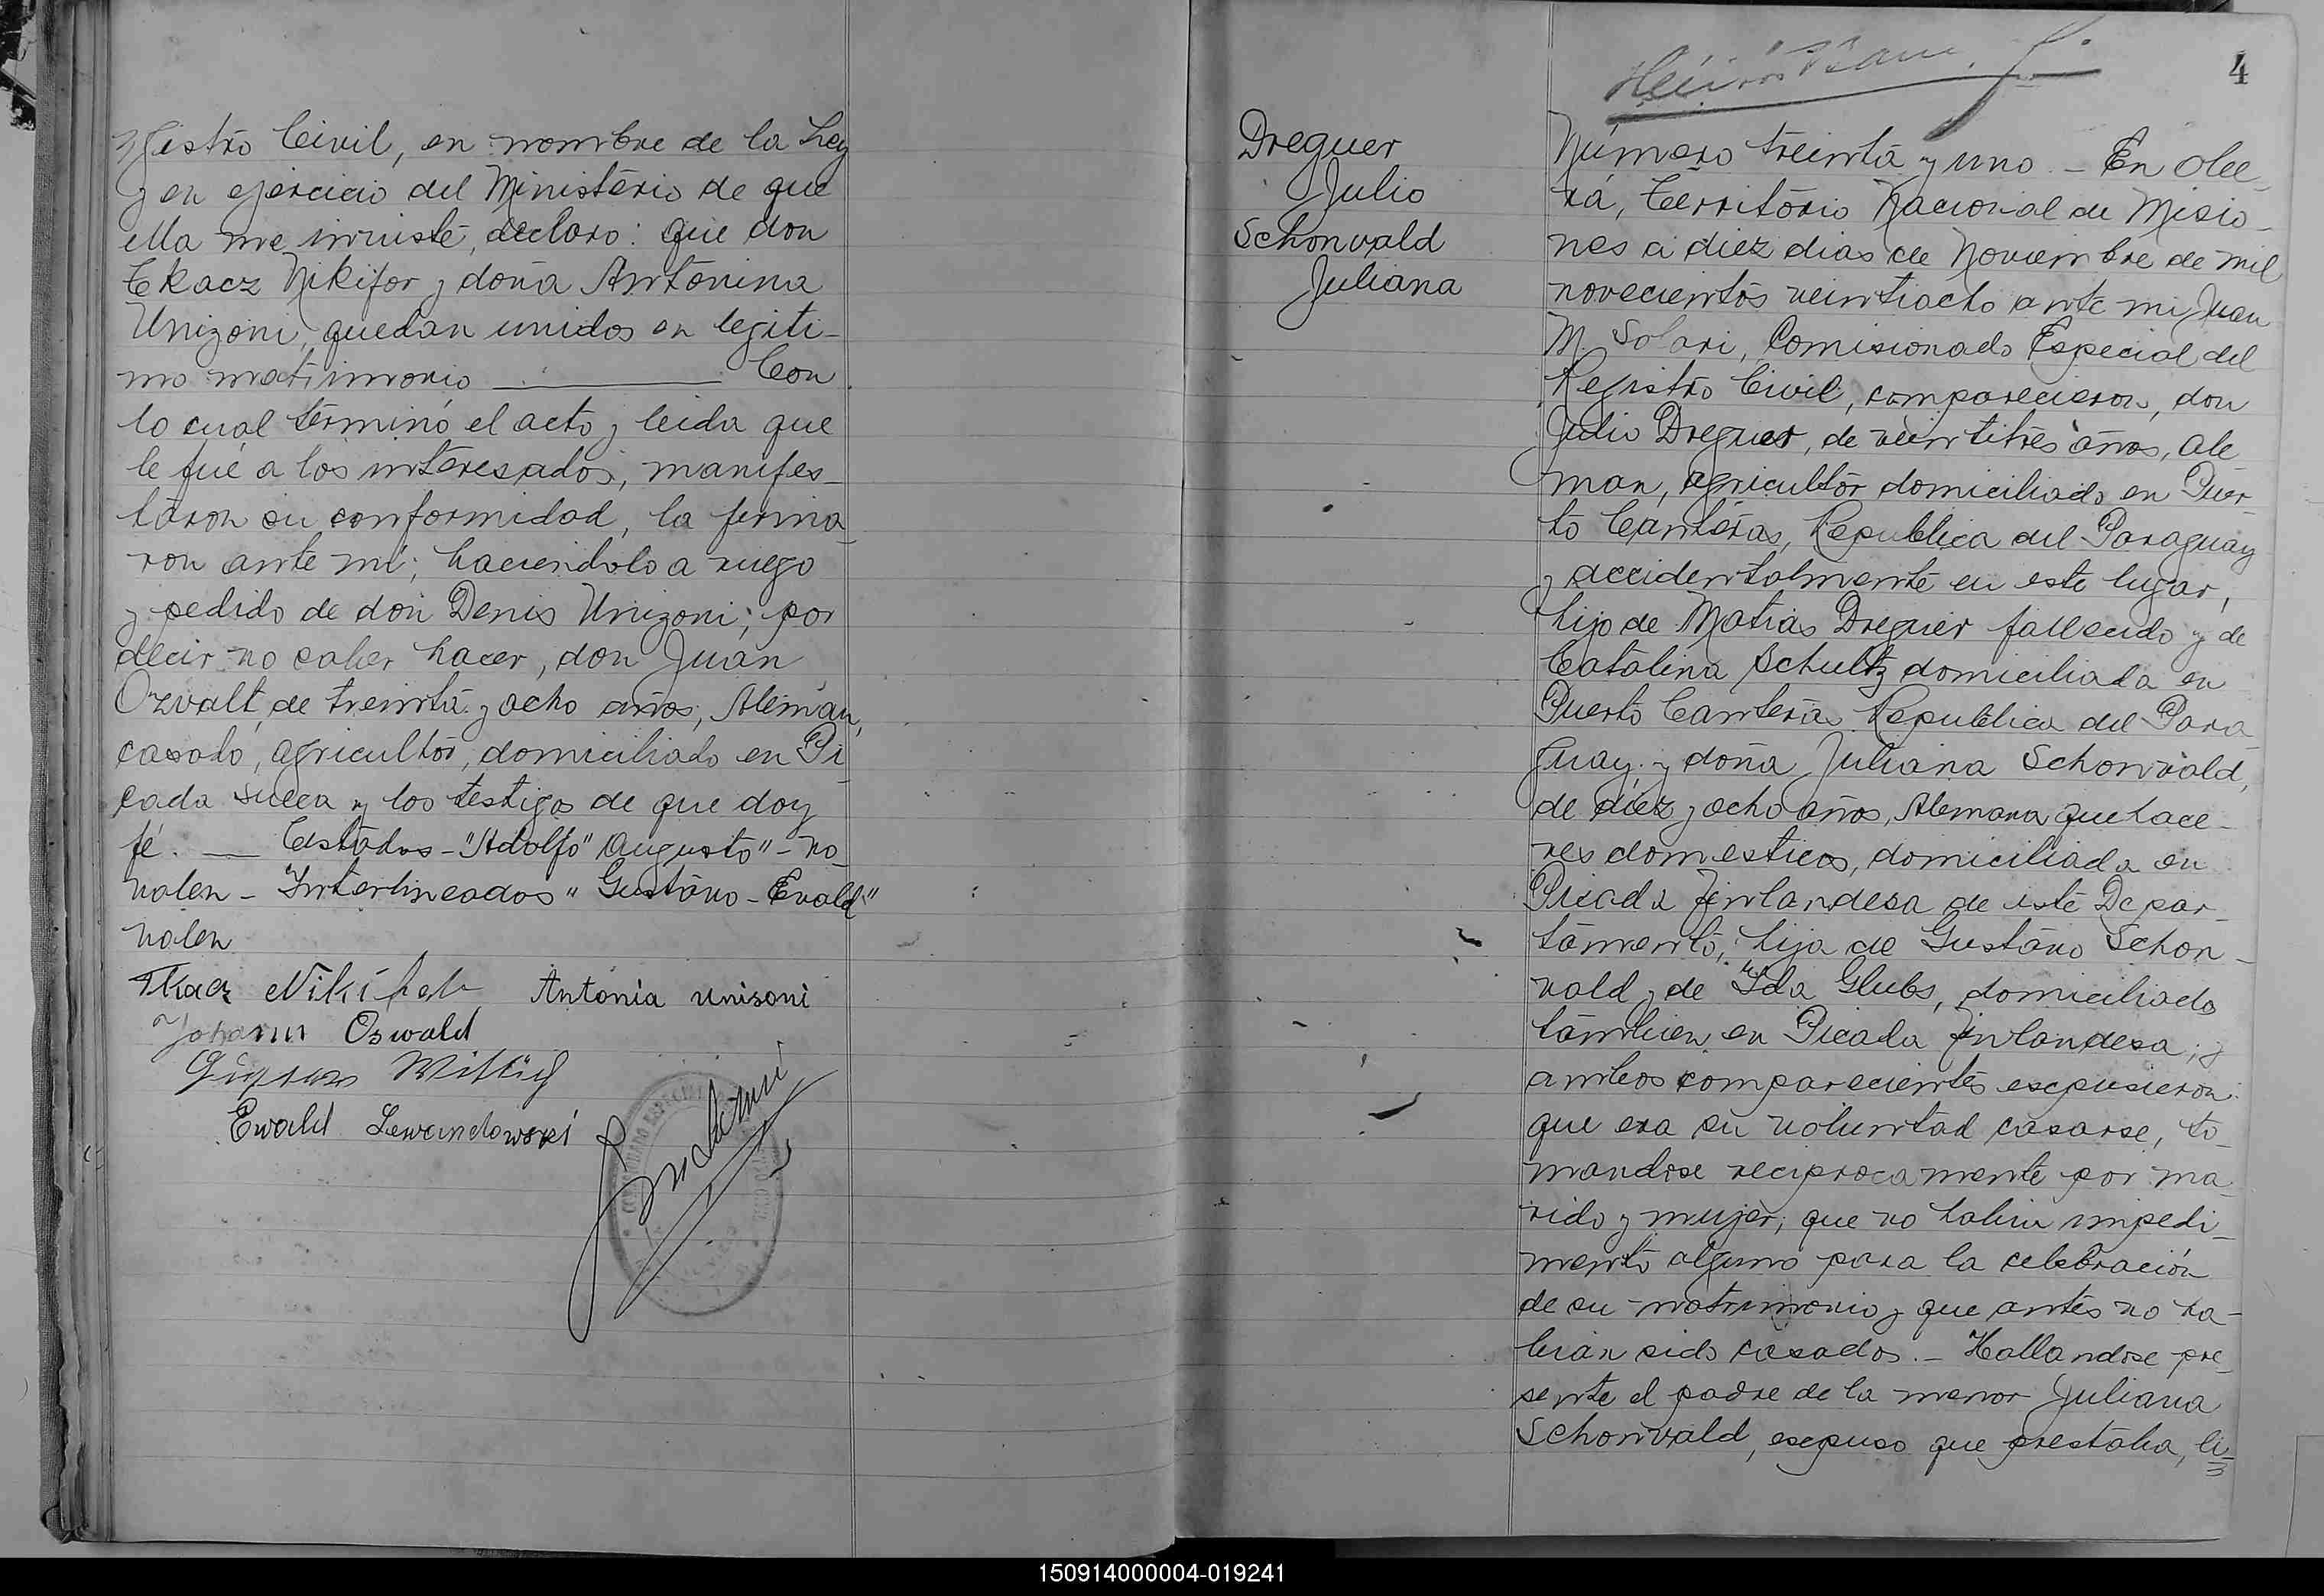 gistro Civil, en nombre de la Ley
y en ejercicio del Ministerio de que
ella me inviste, declaro: que don
Tkacz Nikifor y doña Antonina
Unizoni, quedan unidos en legiti-
mo matrimonio ———— Con
lo cual términó el acto y leida que
le fué a los interesados, manifes-
taron su conformidad, la firma-
ron ante mi; haciendolo a ruego
y pedido de don Denis Unizoni; por
decir no saber hacer, don Juan
Ozvalt, de treinta y ocho años, Alemán,
casado, agricultor, domiciliado en Pi-
cada Sueca y los testigos de que doy
fé. — Testados - "Adolfo" Augusto" - no
valen - Interlineados "Gustavo - Evald"
valen
Tkacz Antonia unisoni
Johann Oswald
Wittig
Ewald Lewandowski
4
Dreguer
Julio
Schonvald
Juliana
Número treinta y uno. - En Olee-
rá, Territorio Nacional de Misio-
nes a diez dias de Noviembre de mil
novecientos veintiocho ante mi Juan
M. Solari, Comisionado Especial del
Registro Civil, comparecieron, don
Julio Dreguer, de veintitres años, ale
man, agricultor domiciliado en Puer-
to Canteras, Republica del Paraguay
y accidentalmente en este lugar,
hijo de Matias Dreguer fallecido y de
Catalina Schultz domiciliada en
Puerto Cantera Republica del Para
guay; y doña Juliana Schonvald,
de diez y ocho años, Alemana quehace-
res domesticos, domiciliada en
Picada Finlandesa de este Depar-
tamento, hija de Gustavo Schon-
vald y de Ida Glubs, domiciliado
tambien en Picada Finlandesa; y
ambos comparecientes escpusieron:
que era su voluntad casarse, to-
mandose reciprocamente por ma-
rido y mujer; que no habia impedi-
mento alguno para la celebración
de su matrimonio y que antes no ha-
bian sido casados. - Hallandose pre-
sente el padre de la menor Juliana
Schonvald, escpuso que prestaba, li-
150914000004-019241